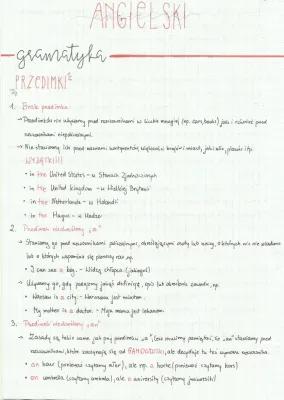 ANGIELSKI
gramatyka
PRZEDIMKI
1. Brak przedimka
→ Przedimków nie używamy przed rzeczownikami w liczbie mnogiej (np. cars, books) jak i również przed
rzeczownikami niepoliczalnymi.
→ Nie stawiamy ich przed nazwami kontynentów, większości krajów i miast, jak i ulic, placów itp.
WYJĄTKI!!!
• in the United States - w Stanach Zjednoczonych
• in the United Kingdom - w Wielkiej Brytanii
• in the Netherlands - w Holandii
• in the Hague - w Hadze
2. Przedimek nieokreślony „a"
→ Stawiamy go przed rzeczownikami policzalnymi, określającymi osoby lub rzeczy, o których nic nie wiadomo
lub o których wspomina się pierwszy raz np.
• I can see a boy. - Widzę chłopca (jakiegoś)
→ Używamy go, gdy podajemy jakąś definicję, opis lub określenie zawodu, np.
• Warsaw is a city. - Warszawa jest miastem.
• My mother is a doctor. - Moja mama jest lekarzem.
3. Przedimek nieokreślony „an"
→ Zasady są takie same jak przy przedimku „a", lecz musimy pamiętać, że „an" stawiamy przed
rzeczownikami, które zaczynają się od SAMOGŁOSKI, ale decyduje tu też wymowa wyrazu np.
• an hour (ponieważ czytamy ałer), ale np. a horse (ponieważ czytamy hors)
• an umbrella (czytamy ambrela), ale a university (czytamy juniwersiti)